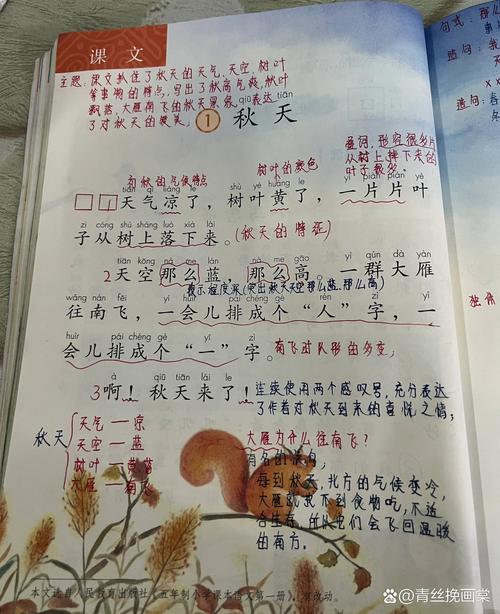 课文
主题:课文抓住了秋天的天气、天空、树叶
等事物的特点,写出了秋高气爽,秋叶
飘落、大雁南飞的秋天景象,表达
了对秋天的赞美。
qiū tiān
1 秋天
叠词,形容很多片
从树上掉下来的
叶子很多
初秋的气候特点
树叶的颜色
tiān qì liáng le shù yè huáng le yí piàn piàn yè
天气凉了,树叶黄了,一片片叶
zi cóng shù shàng luò xià lái
子从树上落下来。(秋天的特征)
tiān kōng nà me lán nà me gāo yì qún dà yàn
2天空那么蓝,那么高。一群大雁
表示程度深(突出秋天天空那么蓝、那么高)
wǎng nán fēi yí huìr pái chéng gè rén zì yí
往南飞,一会儿排成个“人”字,一
huìr pái chéng gè yī zì
会儿排成个“一”字。南飞时队形的多变;
a qiū tiān lái le
3啊!秋天来了!连续使用两个感叹号,充分表达
了作者对秋天到来的喜悦之情;
秋天
天气—凉
天空—蓝
树叶—黄落
大雁—南飞
大雁为什么往南飞?
每到秋天,北方的气候变冷,
大雁就找不到食物吃,不适
合生存,所以它们会飞回温暖
的南方。
本文选自人民教育出版社《五年制小学课本语文第一册》,有改动。
句式:那么
造句:我
造句:春
独角
@青丝挽画堂